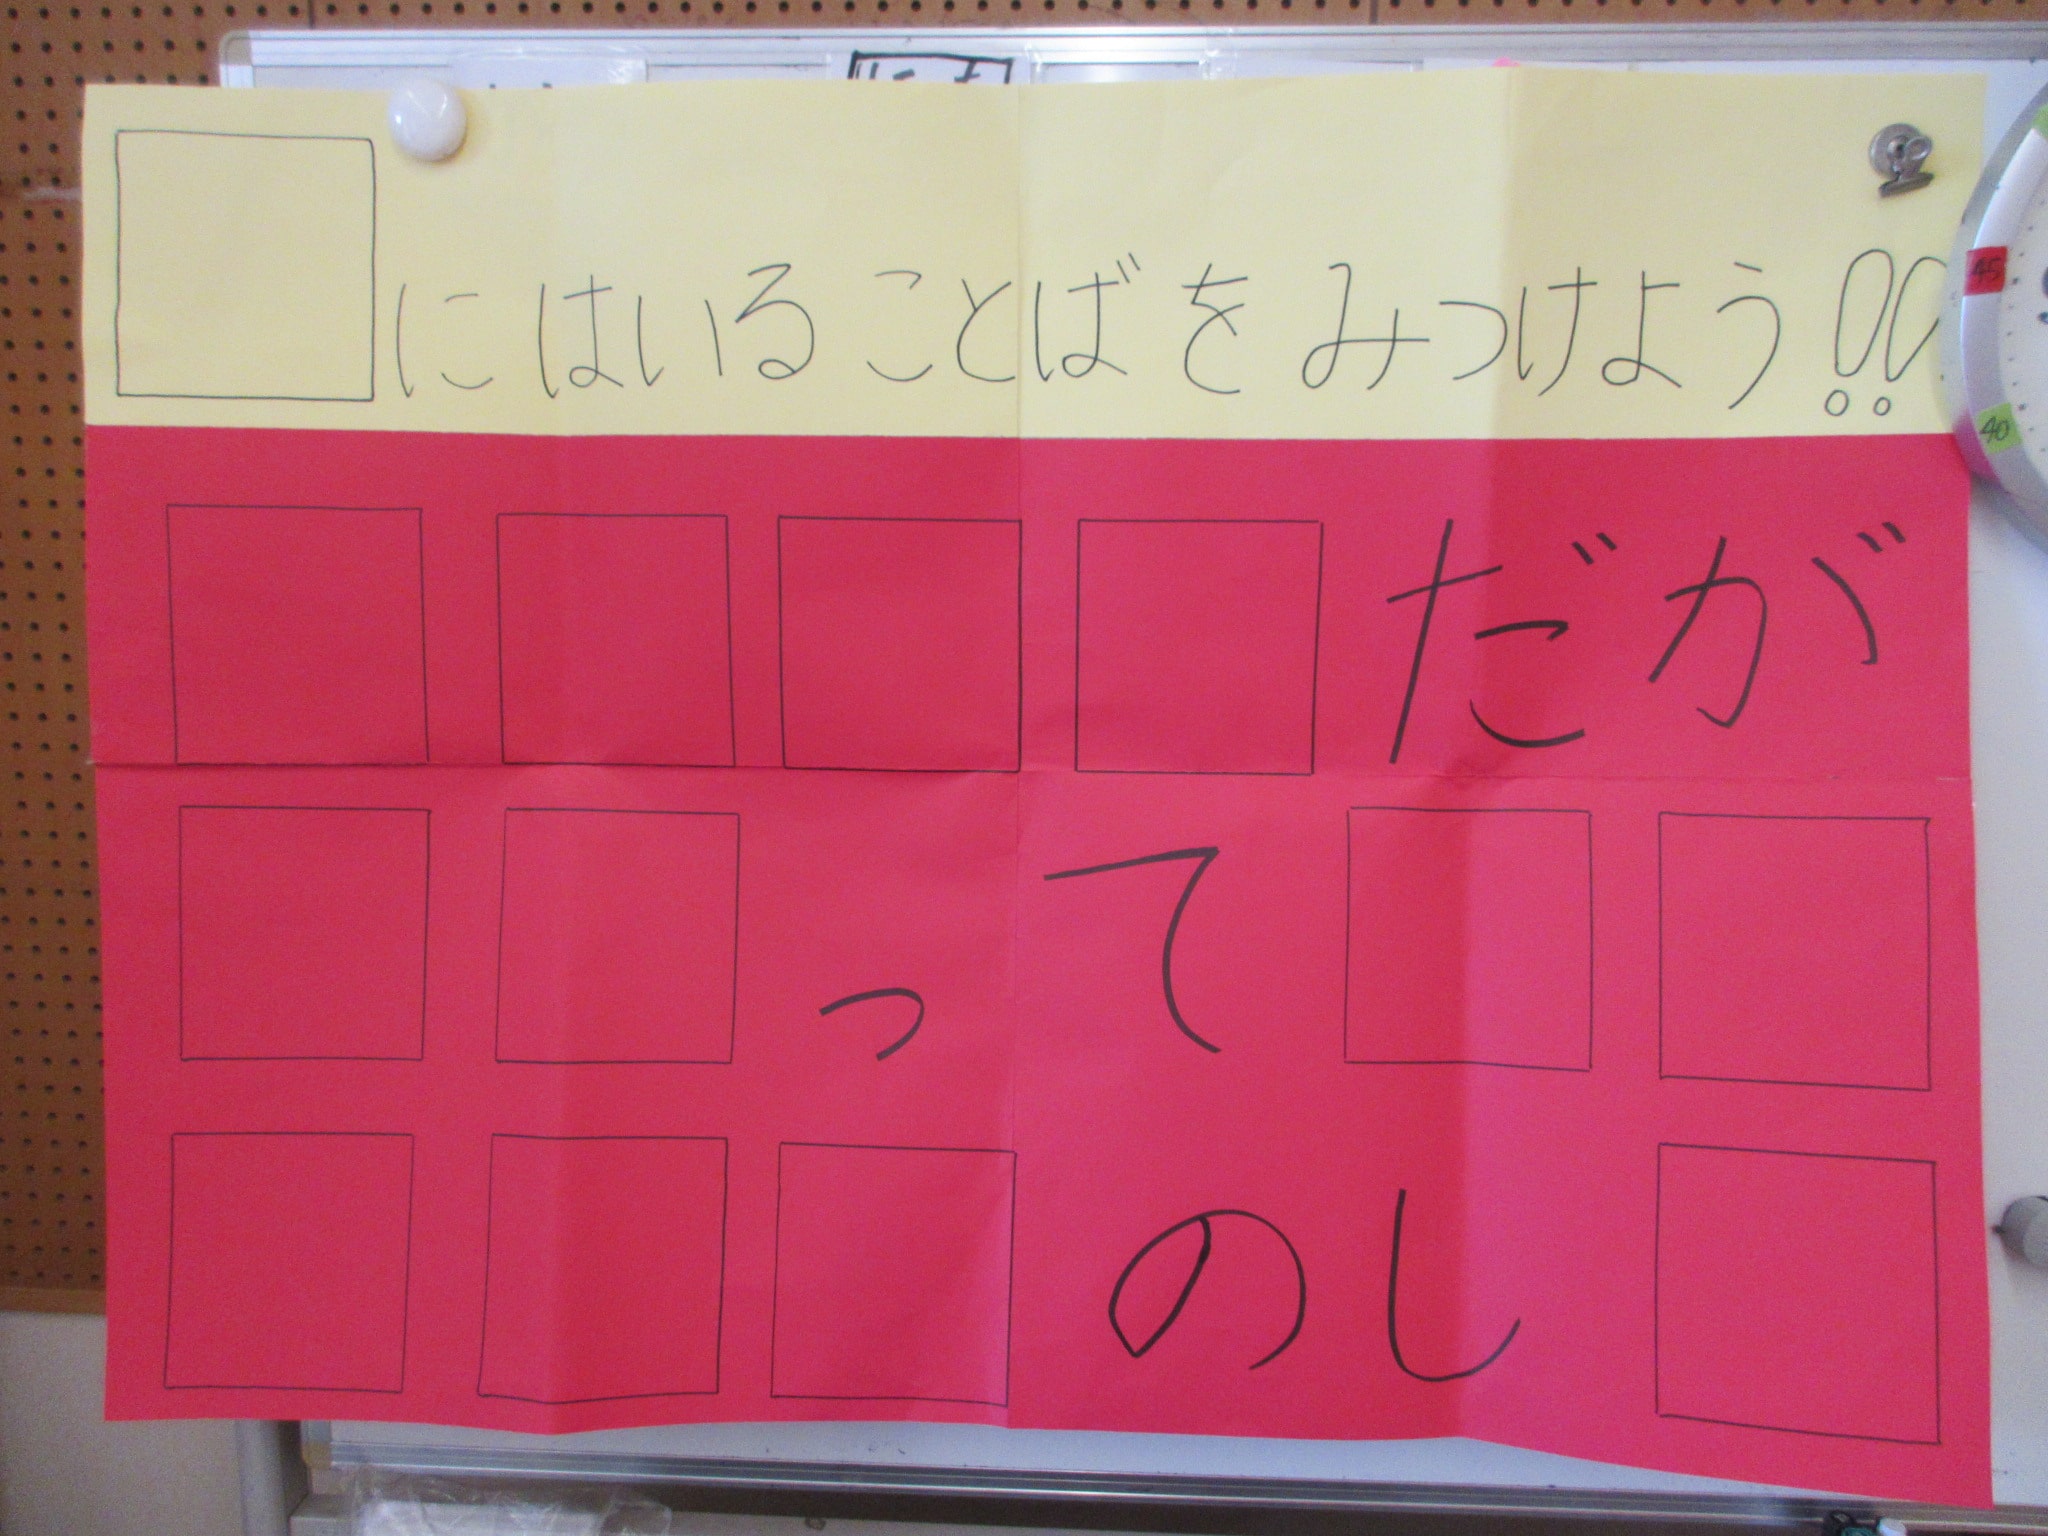 □にはいることばをみつけよう!!
45
40
□□□□だが
□□って□□
□□□のし□